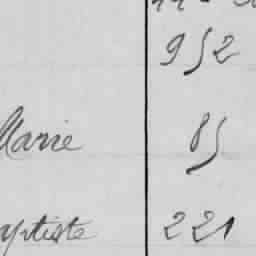 952
Marie 85
aptiste 221